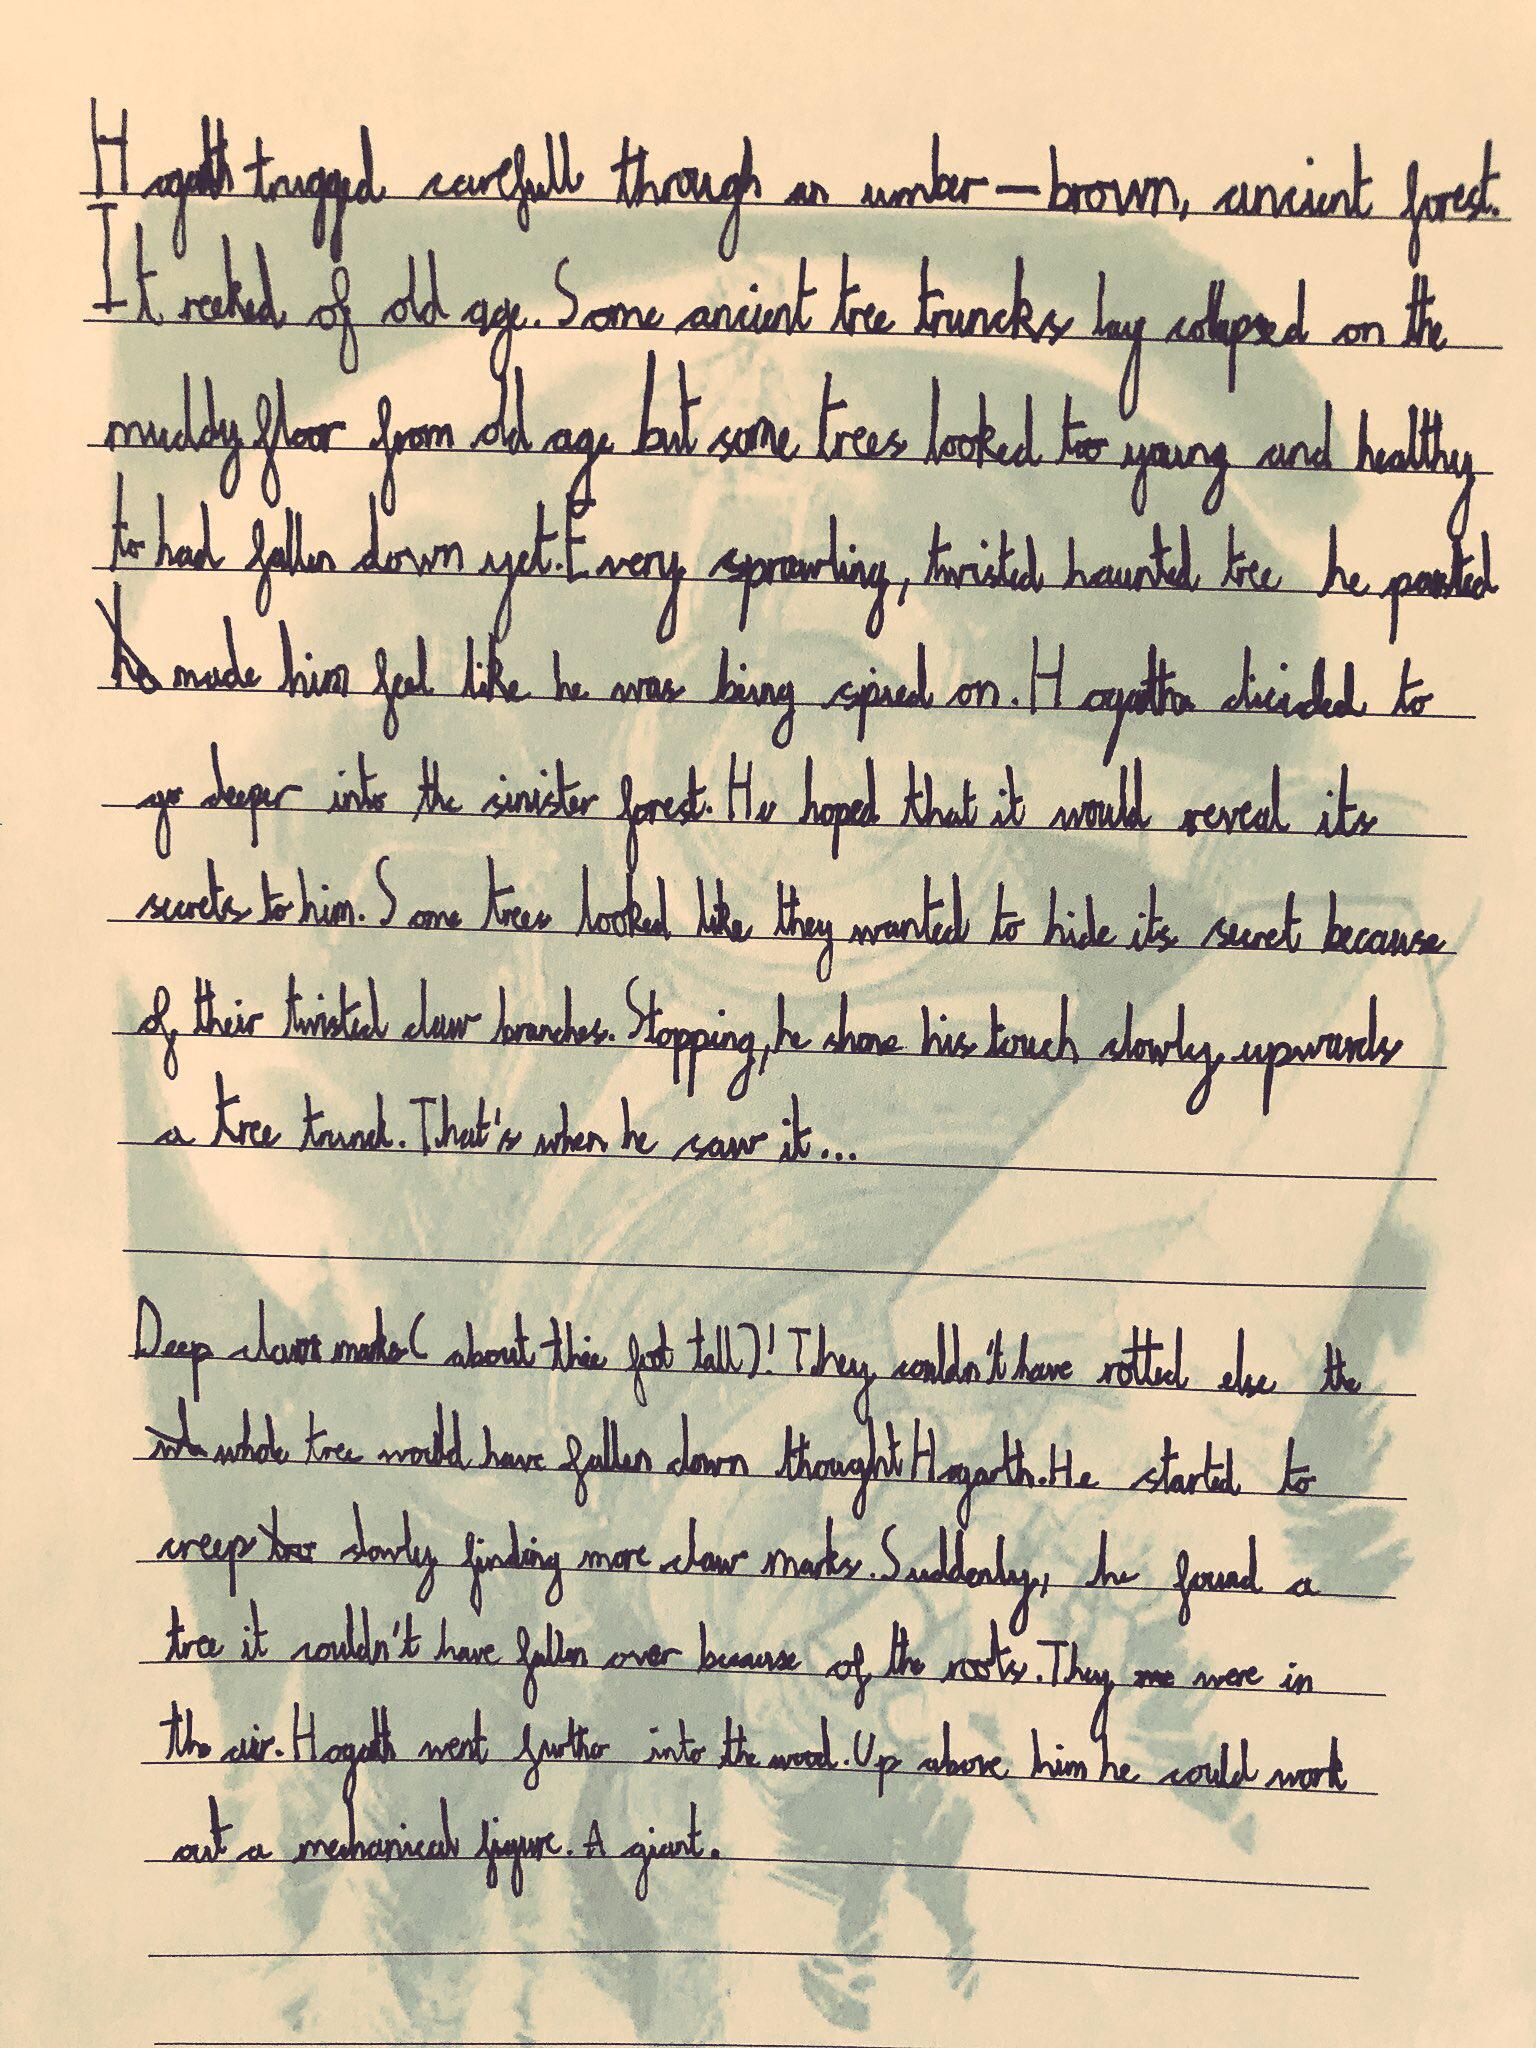 Hogatth trugged carefull through an umber—brown, ancient forest.
It reeked of old age. Some ancient tree truncks lay collapsed on the
muddy floor from old age but some trees looked too young and healthy
to had fallen down yet. Every sprawling, twisted haunted tree he
made him feel like he was being spied on. Hogatha dicided to
go deeper into the sinister forest. He hoped that it would reveal its
secrets to him. Some trees looked like they wanted to hide its secret because
of their twisted claw branches. Stopping, he shone his touch slowly upwards
a tree trunck. That's when he saw it...
Deep claw marks (about thee foot tall)! They couldn't have rotted else the
whole tree would have fallen down thought Hogarth. He started to
creep slowly finding more claw marks. Suddenly, he found a
tree it couldn't have fallen over because of the roots. They were in
the air. Hogatth went furthe into the wood. Up above him he could work
out a mechanical figure. A giant.